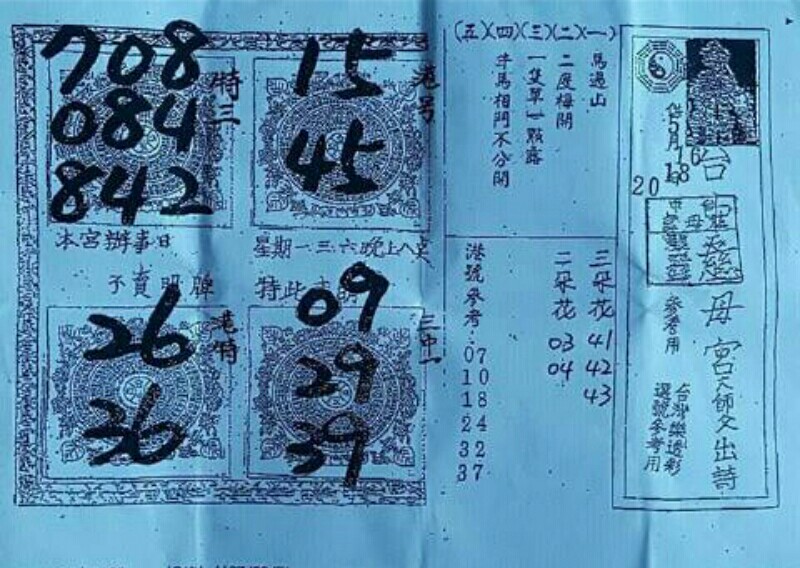 台中慈母宮天師爻出詩
2018年5月16
參考用
台灣樂透彩
選號參考用
(一)(二)(三)(四)(五)
馬過山
二度梅開
一隻草一點露
牛馬相鬥不分開
三朵花 41 42 43
二朵花 03 04
港號參考:07 10 18 24 32 37
港号
15
45
特三
708
084
842
本宮辦事日
星期一三六晚上八点
不賣明牌
特此
三中一
09
29
39
港特
26
36